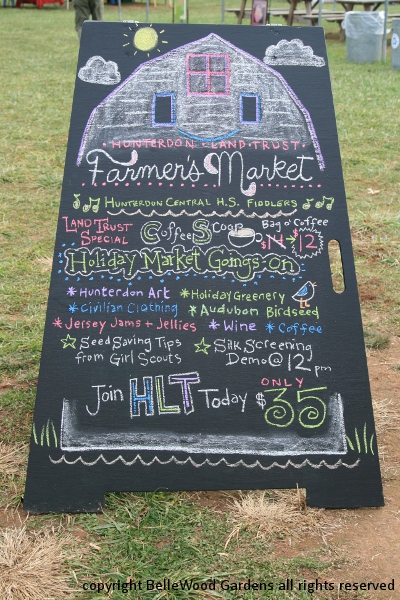 HUNTERDON LAND TRUST
Farmer's Market
HUNTERDON CENTRAL H.S. FIDDLERS
LAND TRUST SPECIAL
Coffee Scoop
Bag o' Coffee
$14 → $12
Holiday Market Goings-On
* Hunterdon Art * Holiday Greenery
* Civilian Clothing * Audubon Birdseed
* Jersey Jams + Jellies * Wine * Coffee
☆ Seed Saving Tips from Girl Scouts
☆ Silk Screening Demo @ 12 pm
Join HLT Today ONLY $35
copyright BelleWood Gardens all rights reserved